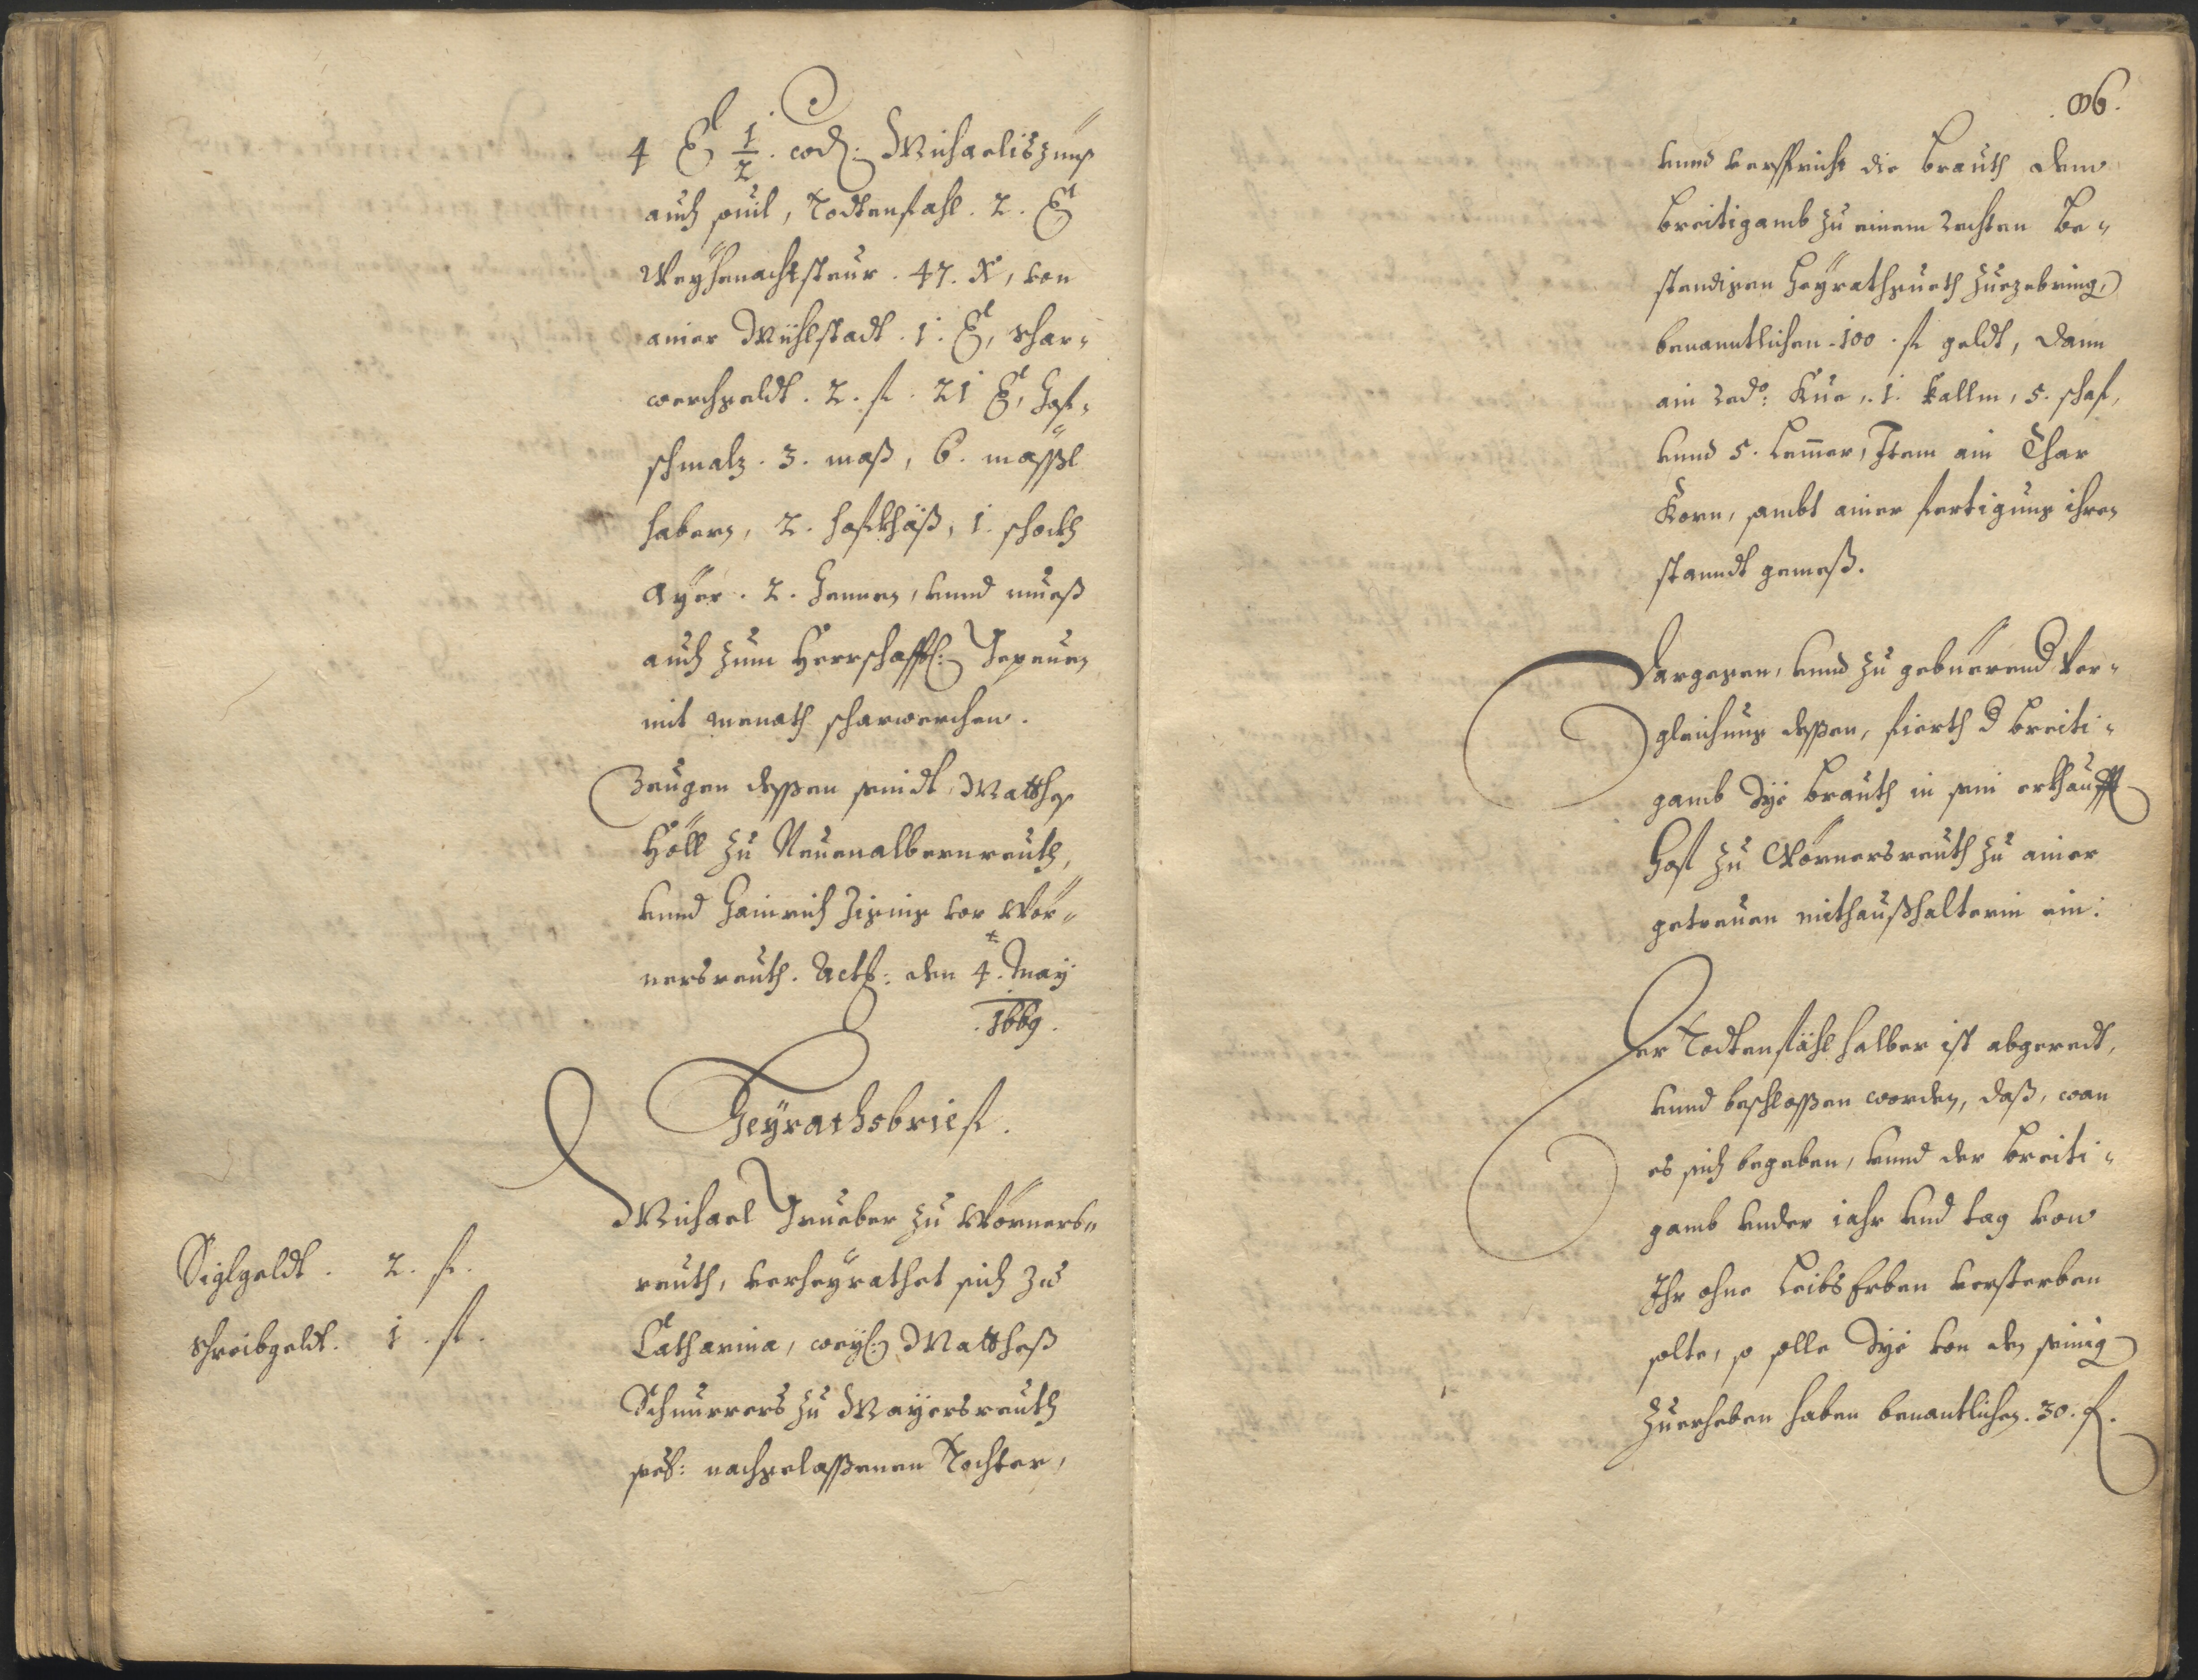 4 ß ½ . cod. Michaeliszünß
auch souil, Todtenfahl . 2 . ß
Weyhenachtsteur . 47 . X, von
ainer Mühlstadt . 1 . ß, schar-
werchgeldt . 2 . fl . 21 ß, Hof-
schmalz . 3 . maß, 6 . mässl
habern, 2 . hofkhäß, 1 . schockh
Ayer . 2 . Hennen, vnnd mueß
auch zum Herrschafftl: Gepeuen
mit menath scharwerchen.
Zeugen dessen seindt Matthes
Höll zu Neuenalbernreuth,
vnnd Hainrich Zising vor Wör-
nersreuth. Actum: den 4. May
. 1669 .
Heyrathsbrief.
Michael Grueber zu Wörners-
reuth, verheyrathet sich zu
Catharina, weyl: Mattheß
Schnurrers zu Mayersreuth
seel: nachgelassenen Tochter,
Siglgeldt . 2 . fl .
Schreibgeldt . 1 . fl .
. 96 .
vnnd verspricht die brauth dem
breitigamb zu einem rechten be-
stendigen Heyrathgueth zuezebring,
benanntlichen . 100 . fl geldt, dann
ain redo: Kue, . 1 . kallm, 5 . schaf,
vnnd 5 . Lemmer, Item ain Char
Korn, sambt ainer fertigung ihren
standt gemeß.
Dargegen, vnnd zu gebüerend ver-
gleichung dessen, fierth d breiti-
gamb Sye brauth in sein erkhaufft
Hof zu Wörnersreuth zu ainer
getreuen mithaußhalterin ein.
Der Todtenfähl halber ist abgeredt,
vnnd beschlossen worden, daß, wan
es sich begeben, vnnd der breiti-
gamb vnder iahr vnd tag von
Ihr ohne LeibsErben versterben
solte, so solle Sye von den seinig
zuerheben haben benantlichen . 30 . fl.